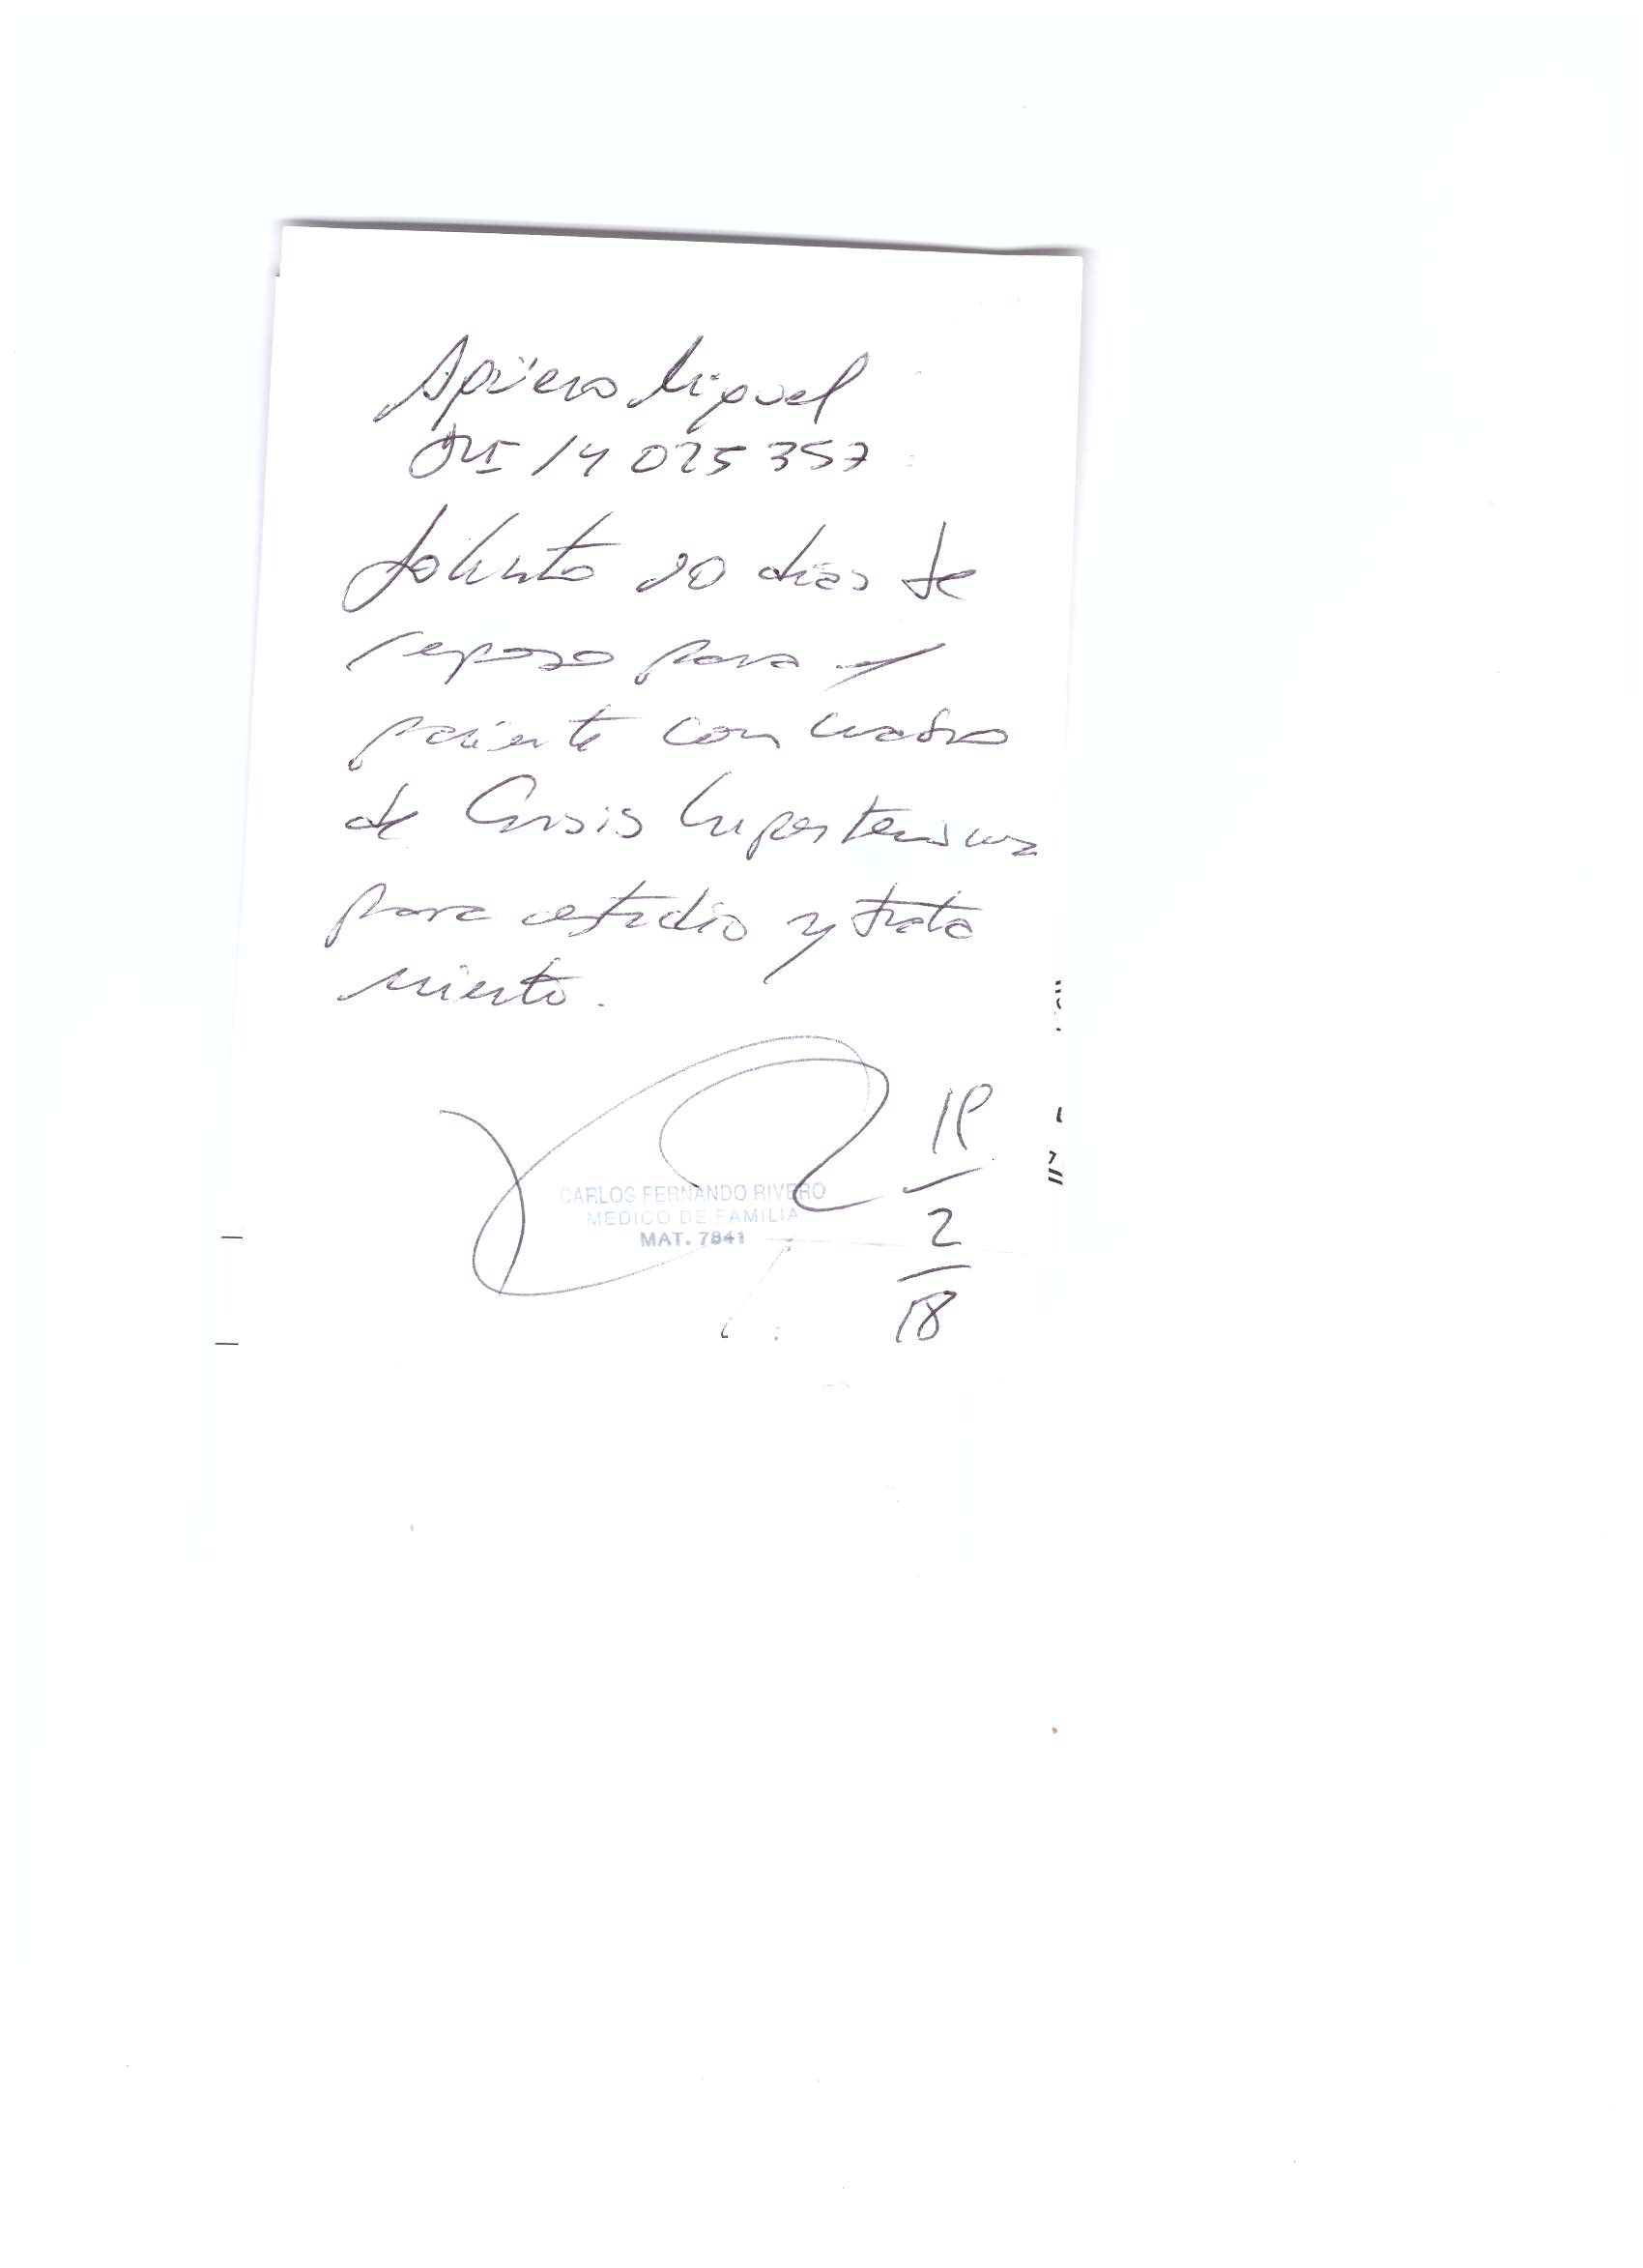 Agüero Miguel
DNI 14 025 357
Solicito 20 dias de
reposo para el
paciente con cuadro
de Crisis hipertensiva
para estudio y trata
miento.
CARLOS FERNANDO RIVERO
MEDICO DE FAMILIA
MAT. 7841
19
2
18